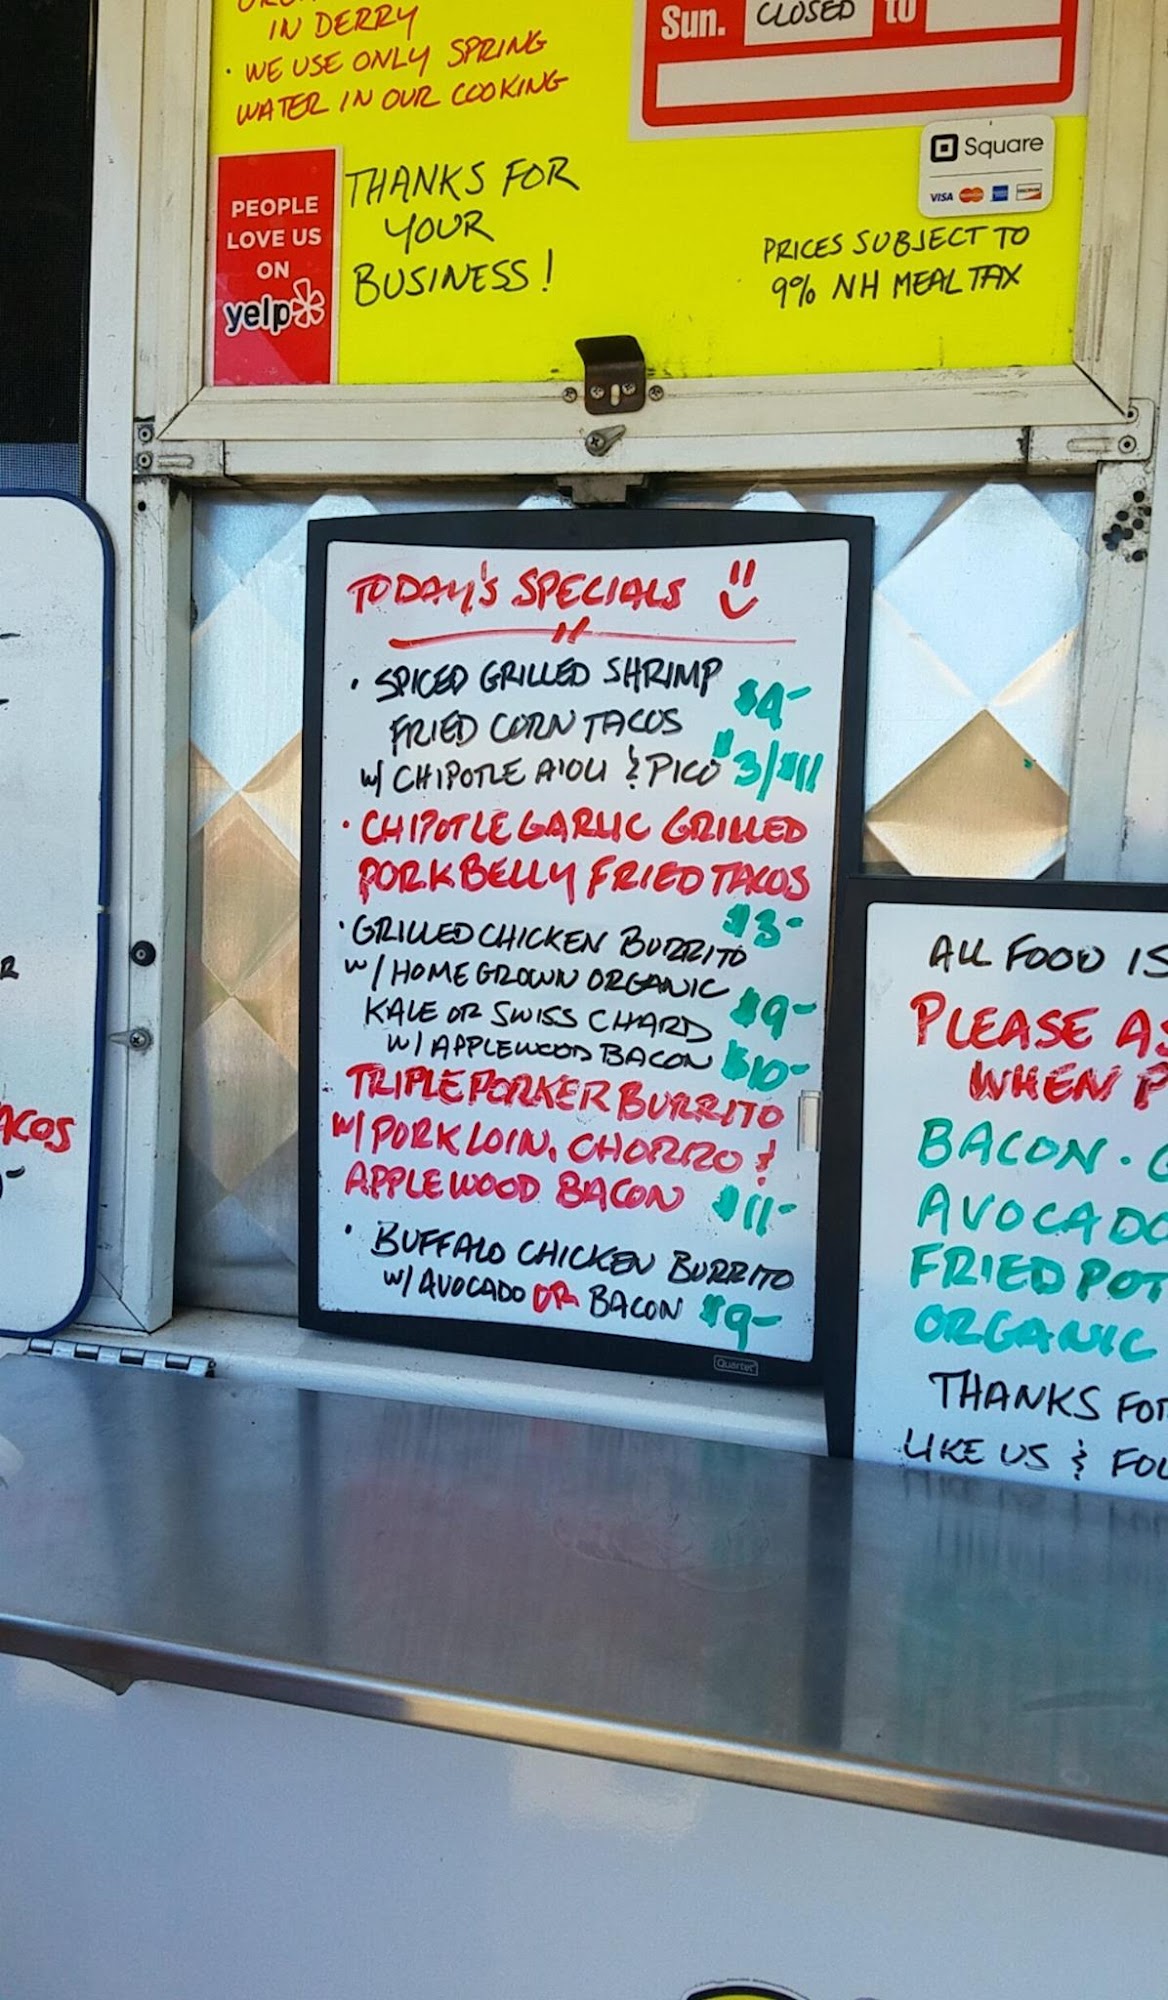 IN DERRY
· WE USE ONLY SPRING
WATER IN OUR COOKING
Sun. CLOSED to
PEOPLE
LOVE US
ON
yelp
THANKS FOR
YOUR
BUSINESS!
Square
VISA
PRICES SUBJECT TO
9% NH MEAL TAX
TODAY'S SPECIALS
· SPICED GRILLED SHRIMP
FRIED CORN TACOS $4-
W/ CHIPOTLE AIOLI & PICO $3/$11
· CHIPOTLE GARLIC GRILLED
PORK BELLY FRIED TACOS
$3-
· GRILLED CHICKEN BURRITO
W/ HOMEGROWN ORGANIC
KALE OR SWISS CHARD $9-
W/ APPLEWOOD BACON $10-
TRIPLE PORKER BURRITO
W/ PORK LOIN, CHORIZO &
APPLEWOOD BACON $11-
· BUFFALO CHICKEN BURRITO
W/ AVOCADO OR BACON $9-
Quartet
ACOS
R
ALL FOOD IS
PLEASE AS
WHEN P
BACON · 
AVOCADO
FRIED POT
ORGANIC
THANKS FOR
LIKE US & FOL